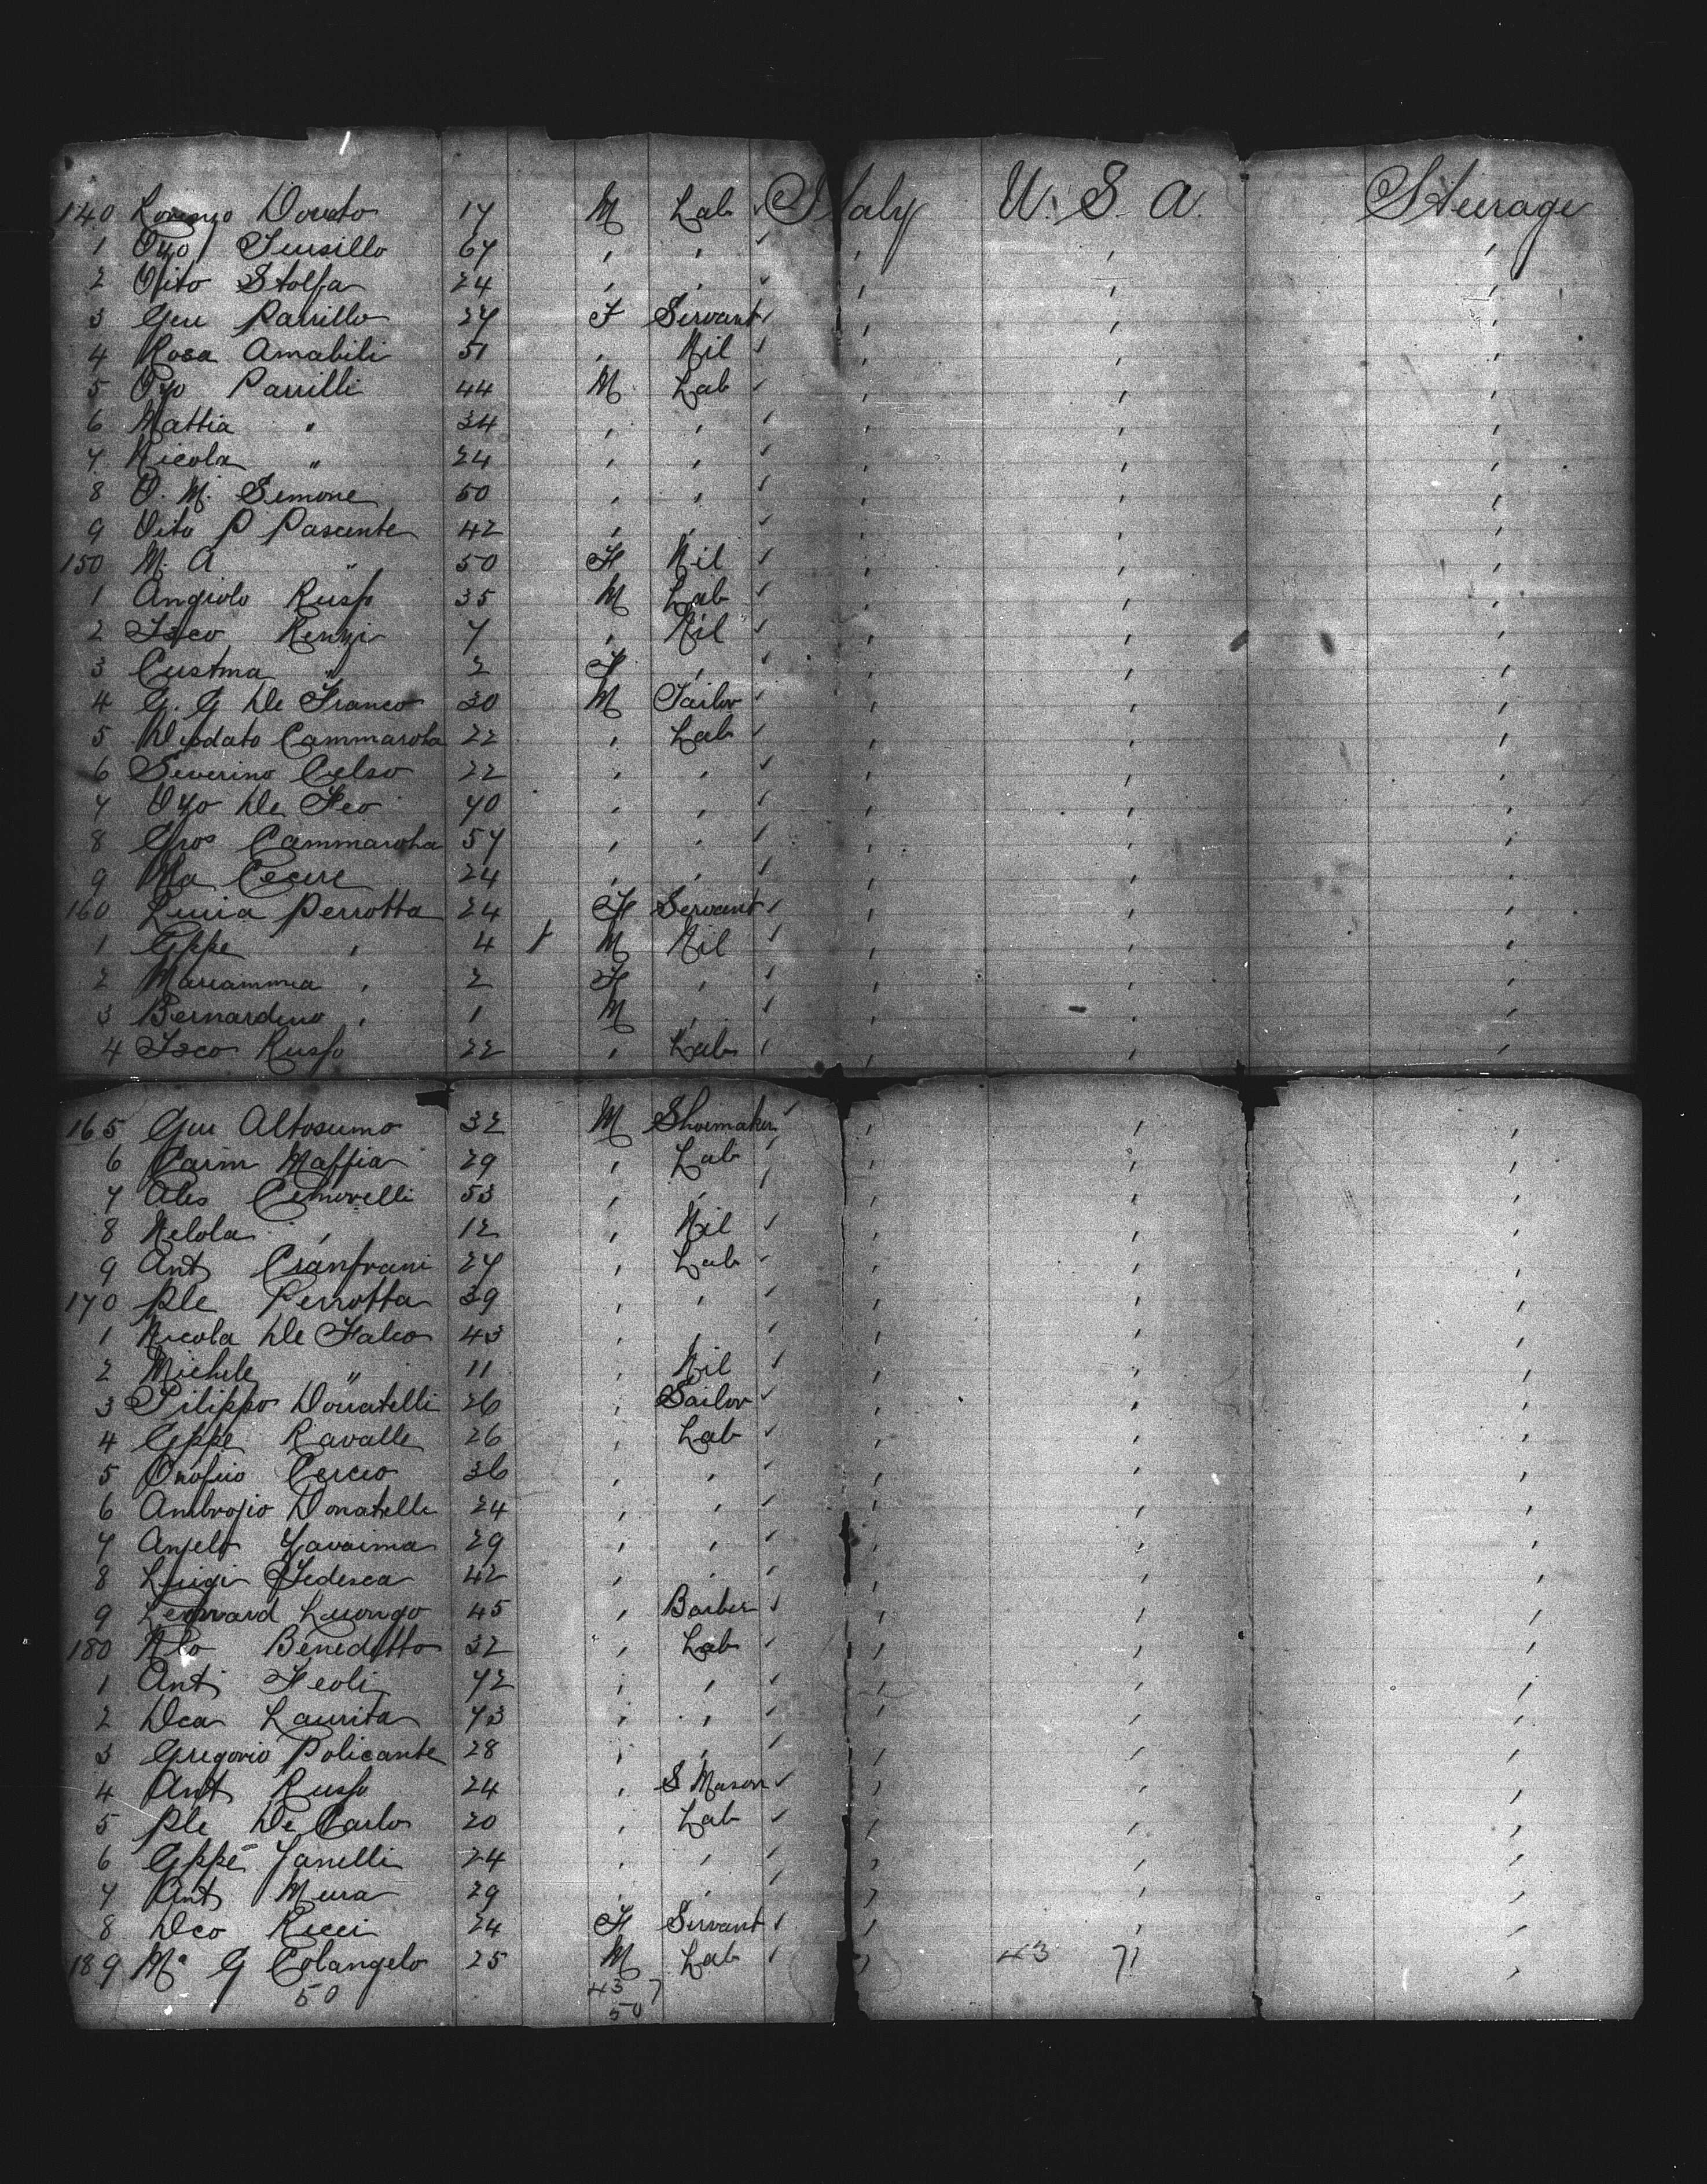 140 Lorenzo Donato 17 M Lab Italy U. S. A. Steerage
1 Tursillo 67 , , , , ,
2 Vito Stolfa 24 , , , , ,
3 Parrillo 27 F Servant , , ,
4 Rosa Amabili 51 , Nil , , ,
5 Parrilli 44 M Lab , , ,
6 Mattia " 34 , , , , ,
7 Nicola " 24 , , , , ,
8 D. M. Simone 50 , , , , ,
9 Vito P Pascente 42 , , , , ,
150 M. A " 50 F Nil , , ,
1 Angiolo Russo 35 M Lab , , ,
2 Fsco Renzi 7 , Nil , , ,
3 Custma " 2 F , , , ,
4 G. G De Franco 30 M Tailor , , ,
5 Diodato Cammarota 22 , Lab , , ,
6 Severino Celso 22 , , , , ,
7 De Feo 40 , , , , ,
8 Cammarota 57 , , , , ,
9 Ma Cecere 24 , , , , ,
160 Lucia Perrotta 24 F Servant , , ,
1 Gppe , 4 M Nil , , ,
2 Mariannina , 2 F , , , ,
3 Bernardino , 1 M , , , ,
4 Fsco Russo 22 , Lab , , ,
165 Altosumo 32 M Shoemaker , , ,
6 Carm Maffia 29 , Lab , , ,
7 Ales Cimorelli 53 , , , , ,
8 Nelola , 12 , Nil , , ,
9 Ant Cianfrani 27 , Lab , , ,
170 Ple Perrotta 39 , , , , ,
1 Nicola De Falco 43 , , , , ,
2 Michele " 11 , Nil , , ,
3 Filippo Donatelli 26 , Sailor , , ,
4 Gppe Ravalle 26 , Lab , , ,
5 Onofrio Cercio 36 , , , , ,
6 Ambrojio Donatelli 24 , , , , ,
7 Anjelo 29 , , , , ,
8 Luigi Tedesca 42 , , , , ,
9 Leonard Luongo 45 , Barber , , ,
180 Benedetto 32 , Lab , , ,
1 Ant Feoli 42 , , , , ,
2 Dca Laurita 43 , , , , ,
3 Gregorio Policante 28 , , , , ,
4 Ant Russo 24 , S Mason , , ,
5 Ple De Carlo 20 , Lab , , ,
6 Gppe Janelli 24 , , , , ,
7 Ant Mura 29 , , , , ,
8 Dco Ricci 24 F Servant , , ,
189 Ma G Colangelo 25 M Lab , 43 71 ,
50 43 7
50